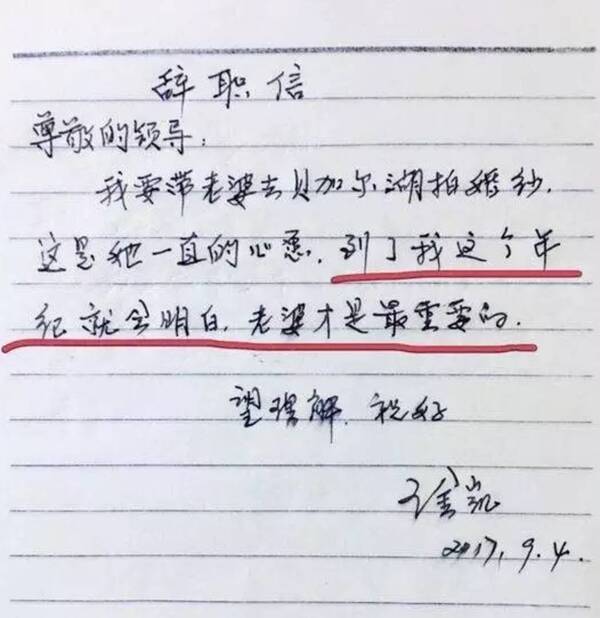 辞职信
尊敬的领导:
我要带老婆去贝加尔湖拍婚纱,
这是她一直的心愿,到了我这个年
纪就会明白,老婆才是最重要的.
望理解,祝好
凯
2017.9.4.